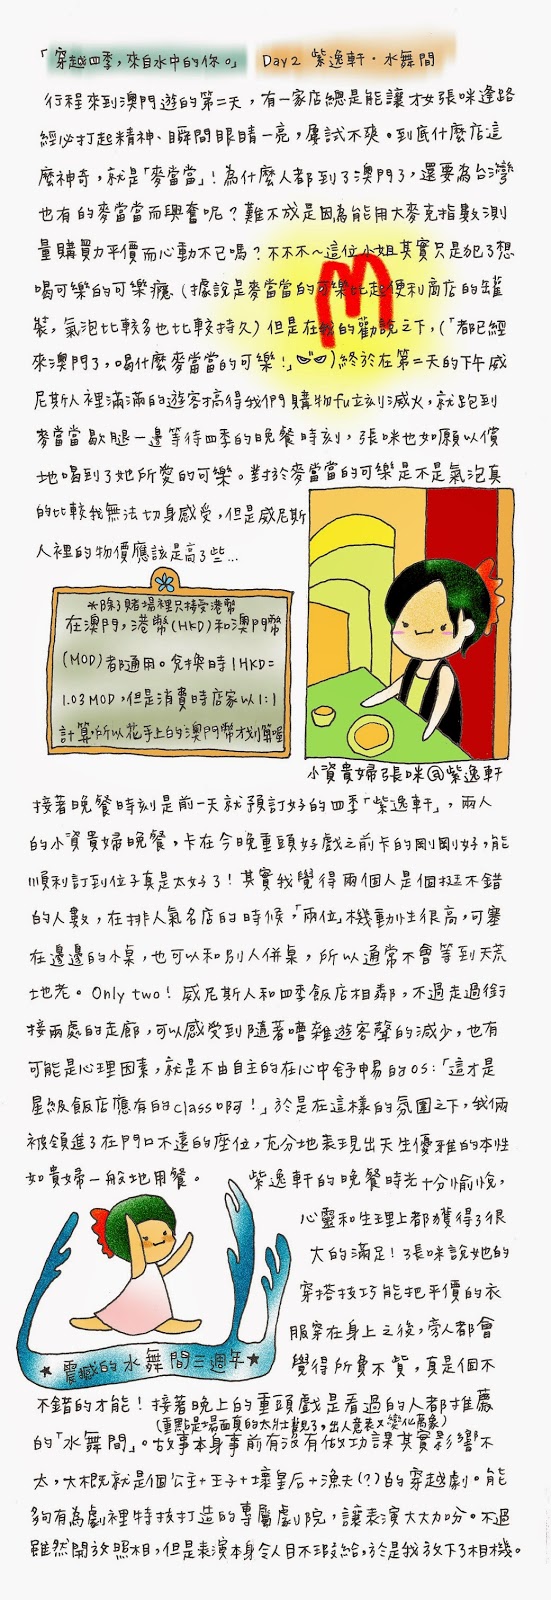 「穿越四季，來自水中的你。」 Day2 紫逸軒・水舞間
行程來到澳門遊的第二天，有一家店總是能讓才女張咪逢路
經必打起精神、瞬間眼睛一亮，屢試不爽。到底什麼店這
麼神奇，就是「麥當當」！為什麼人都到了澳門了，還要為台灣
也有的麥當當而興奮呢？難不成是因為能用大麥克指數測
量購買力平價而心動不已嗎？不不不～這位小姐其實只是犯了想
喝可樂的可樂癮（據說是麥當當的可樂比起便利商店的罐
裝，氣泡比較多也比較持久）但是在我的勸說之下，（「都已經
來澳門了，喝什麼麥當當的可樂！」）終於在第二天的下午威
尼斯人裡滿滿的遊客搞得我們購物fu立刻滅火，就跑到
麥當當歇腿一邊等待四季的晚餐時刻，張咪也如願以償
地喝到了她所愛的可樂。對於麥當當的可樂是不是氣泡真
的比較我無法切身感受，但是威尼斯
人裡的物價應該是高了些...
＊除了賭場裡只接受港幣
在澳門，港幣(HKD)和澳門幣
(MOD)都通用。兌換時1HKD=
1.03MOD，但是消費時店家以1:1
計算，所以花手上的澳門幣才划算喔
小資貴婦張咪@紫逸軒
接著晚餐時刻是前一天就預訂好的四季「紫逸軒」，兩人
的小資貴婦晚餐，卡在今晚重頭好戲之前卡的剛剛好，能
順利訂到位子真是太好了！其實我覺得兩個人是個挺不錯
的人數，在排人氣名店的時候，「兩位」機動性很高，可塞
在邊邊的小桌，也可以和別人併桌，所以通常不會等到天荒
地老。Only two！威尼斯人和四季飯店相鄰，不過走過銜
接兩處的走廊，可以感受到隨著嘈雜遊客聲的減少，也有
可能是心理因素，就是不由自主的在心中舒暢的OS：「這才是
星級飯店應有的class啊！」於是在這樣的氛圍之下，我倆
被領進了在門口不遠的座位，充分地表現出天生優雅的本性
如貴婦一般地用餐。 紫逸軒的晚餐時光十分愉悅，
心靈和生理上都獲得了很
大的滿足！張咪說她的
穿搭技巧能把平價的衣
服穿在身上之後，旁人都會
覺得所費不貲，真是個不
★震撼的水舞間三週年★
不錯的才能！接著晚上的重頭戲是看過的人都推薦
（重點是場面真的太壯觀了，出人意表又變化萬象）
的「水舞間」。故事本身事前有沒有做功課其實影響不
太，大概就是個公主+王子+壞皇后+漁夫(?)的穿越劇。能
夠有為劇裡特技打造的專屬劇院，讓表演大大加分。不過
雖然開放照相，但是表演本身令人目不暇給，於是我放下了相機。